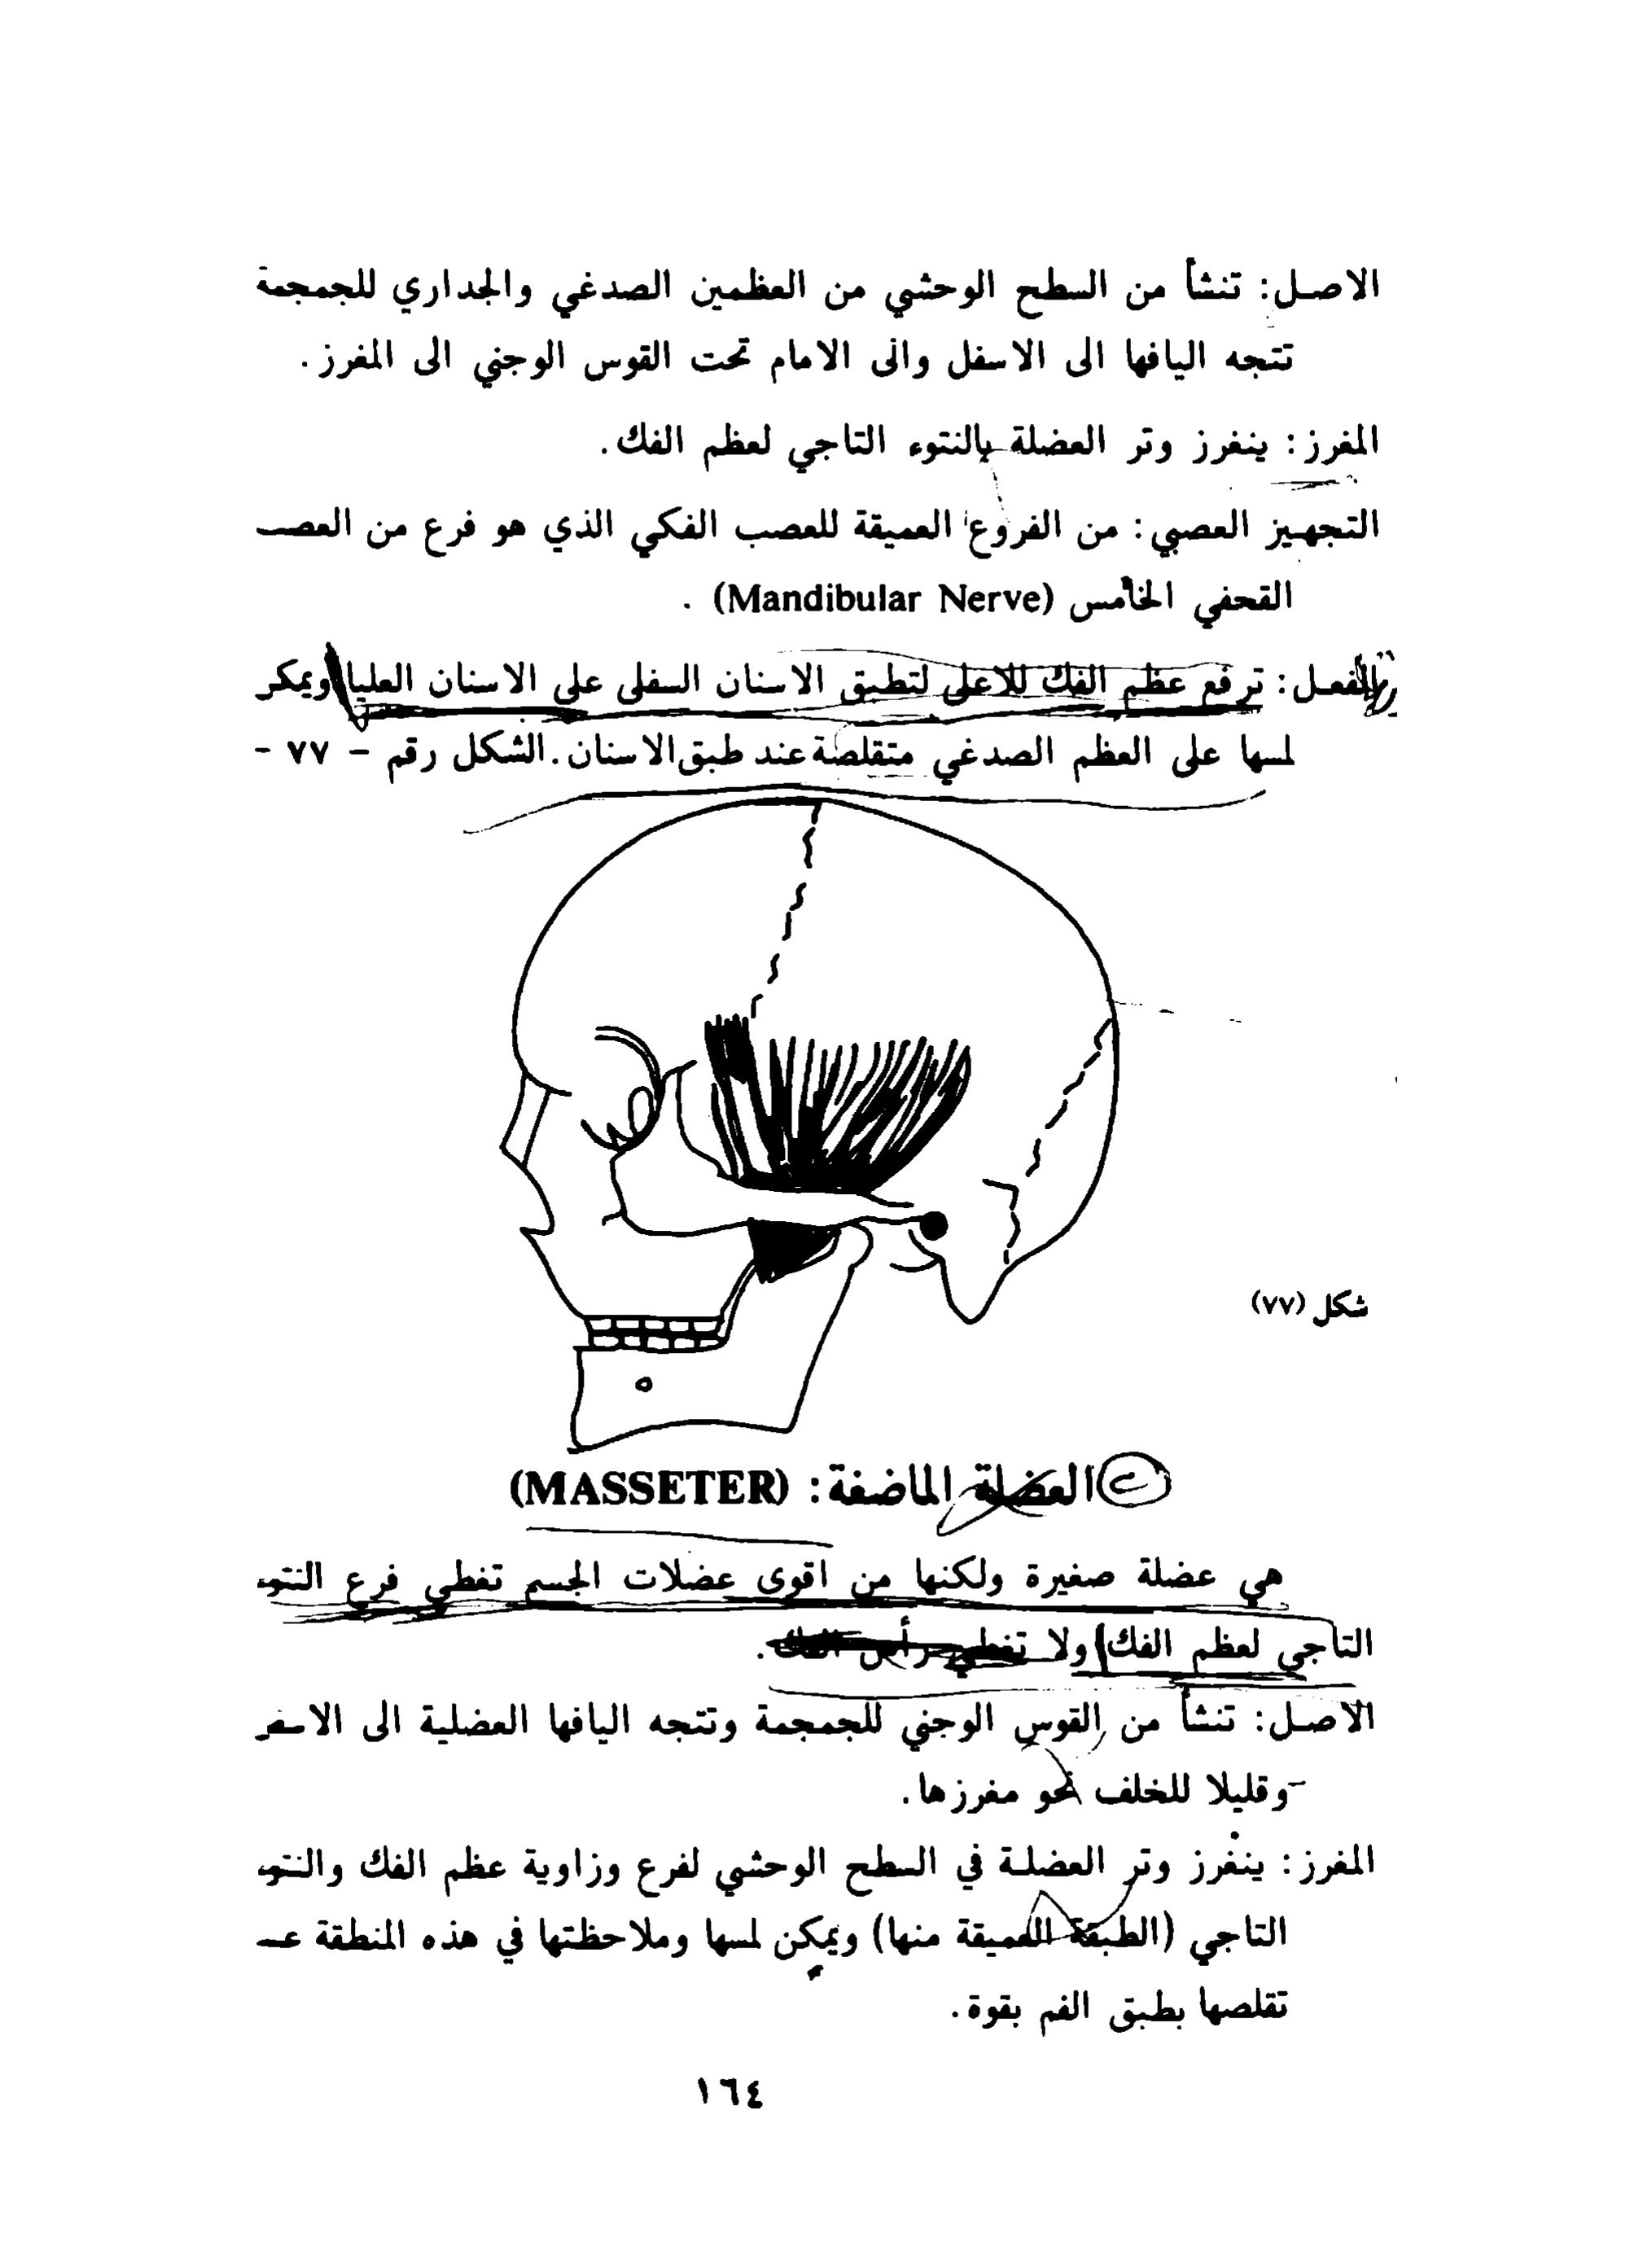 الاصل: تنشأ من السطح الوحشي من العظمين الصدغي والجداري للجمجمة
تتجه اليافها الى الاسفل والى الامام تحت القوس الوجني الى المغرز.
المغرز: ينغرز وتر العضلة بالنتوء التاجي لعظم الفك.
التجهيز العصبي: من الفروع العميقة للعصب الفكي الذي هو فرع من العصب
القحفي الخامس (Mandibular Nerve) .
الفعل: ترفع عظم الفك للاعلى لتطبق الاسنان السفلى على الاسنان العليا ويمكن
لمسها على العظم الصدغي متقلصة عند طبق الاسنان. الشكل رقم - ٧٧ -
شكل (٧٧)
العضلة الماضغة: (MASSETER)
هي عضلة صغيرة ولكنها من اقوى عضلات الجسم تغطي فرع النتوء
التاجي لعظم الفك ولا تغطي رأس الفك.
الاصل: تنشأ من القوس الوجني للجمجمة وتتجه اليافها العضلية الى الاسفل
وقليلا للخلف نحو مغرزها.
المغرز: ينغرز وتر العضلة في السطح الوحشي لفرع وزاوية عظم الفك والنتوء
التاجي (الطبقة العميقة منها) ويمكن لمسها وملاحظتها في هذه المنطقة
تقلصها بطبق الفم بقوة.
١٦٤